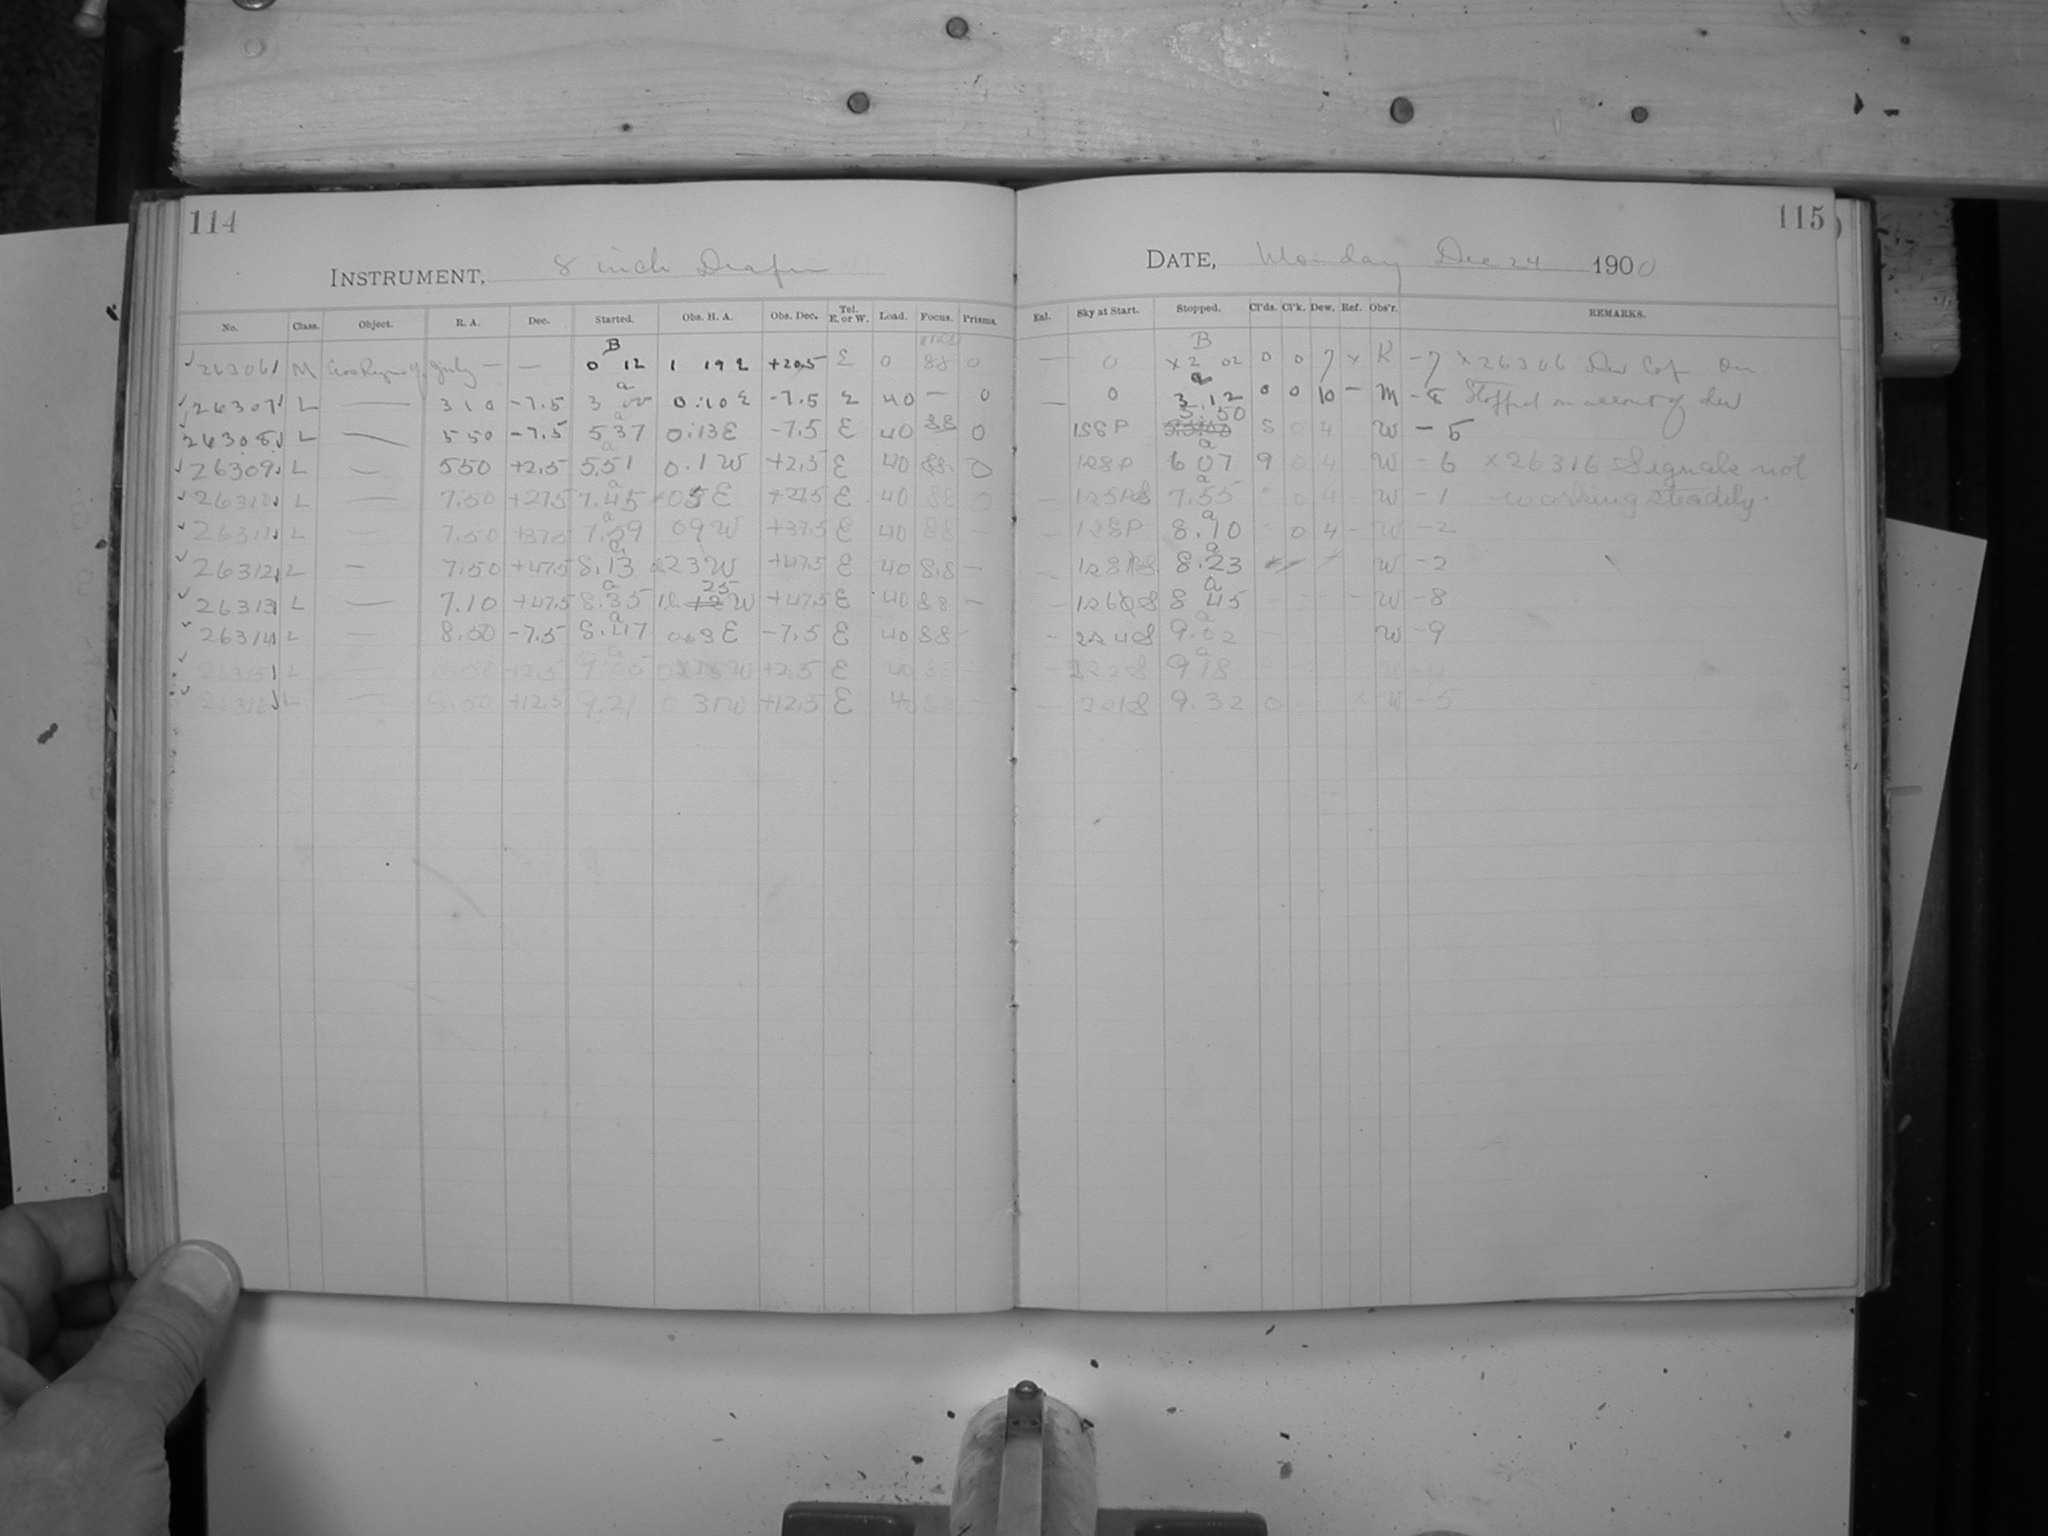 114
INSTRUMENT, 8 inch Draper
No. Class. Object. R. A. Dec. Started. Obs. H. A. Obs. Dec. Tel. E. or W. Load. Focus. Prisms.
26306 M — — B 0 12 1 19 E +20.5 E 0 88 0
26307 L — 3 10 -7.5 a 3 00 0.10 E -7.5 E 40 — 0
26308 L — 5 50 -7.5 a 5 37 0.13 E -7.5 E 40 88 0
26309 L — 5 50 +2.5 a 5.51 0.1 W +2.5 E 40 88 0
26310 L — 7.50 +27.5 a 7.45 05 E +27.5 E 40 88 0
26311 L — 7.50 +37.5 a 7.59 09 W +37.5 E 40 88 —
26312 L — 7.50 +47.5 a 8.13 23 W +47.5 E 40 8.8 —
26313 L — 7.10 +47.5 a 8.35 25 W +47.5 E 40 88 —
26314 L — 8.50 -7.5 a 8.47 0.03 E -7.5 E 40 88 —
26315 L — 8.50 +2.5 a +2.5 E 40 88 —
26316 L — 8.50 +12.5 9.21 0 31 W +12.5 E 40 88 —
115
DATE, Monday Dec 24 1900
Enl. Sky at Start. Stopped. Cl'ds. Cl'k. Dew. Ref. Obs'r. REMARKS.
— 0 B x2 02 0 0 7 x K -7 x26306 Dew Cap On
— 0 a 3.12 0 0 10 — M -8 Stopped on account of dew
12 8 P 5.50 5 0 4 W -5
12 8 P a 6 07 9 0 4 W -6 x26316 Signals not
— a 7.55 - 0 4 - W -1 working steadily.
— 12 8 P a 8.10 - 0 4 - W -2
— a 8.23 W -2
— a 8 45 - - - - W -8
— 22 4 S a 9.02 W -9
— 22 2 S a 9 18
— 22 1 S 9.32 0 x W -5